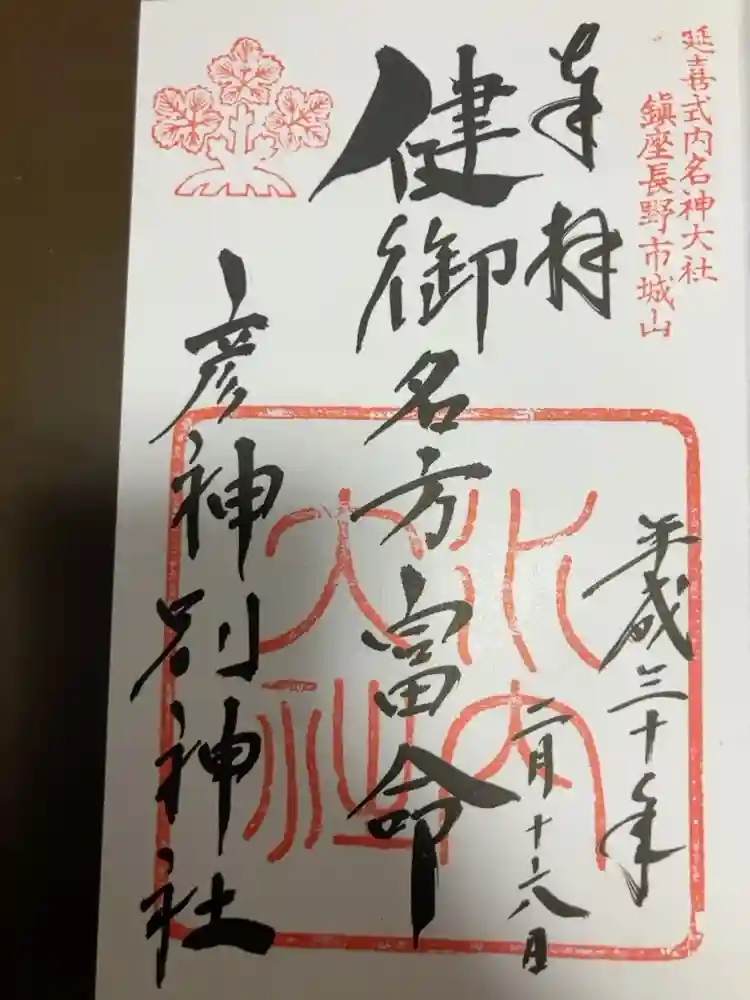 延喜式内名神大社
鎮座長野市城山
奉拝
健御名方富命
彦神別神社
平成三十年
二月十六日
水内
大社